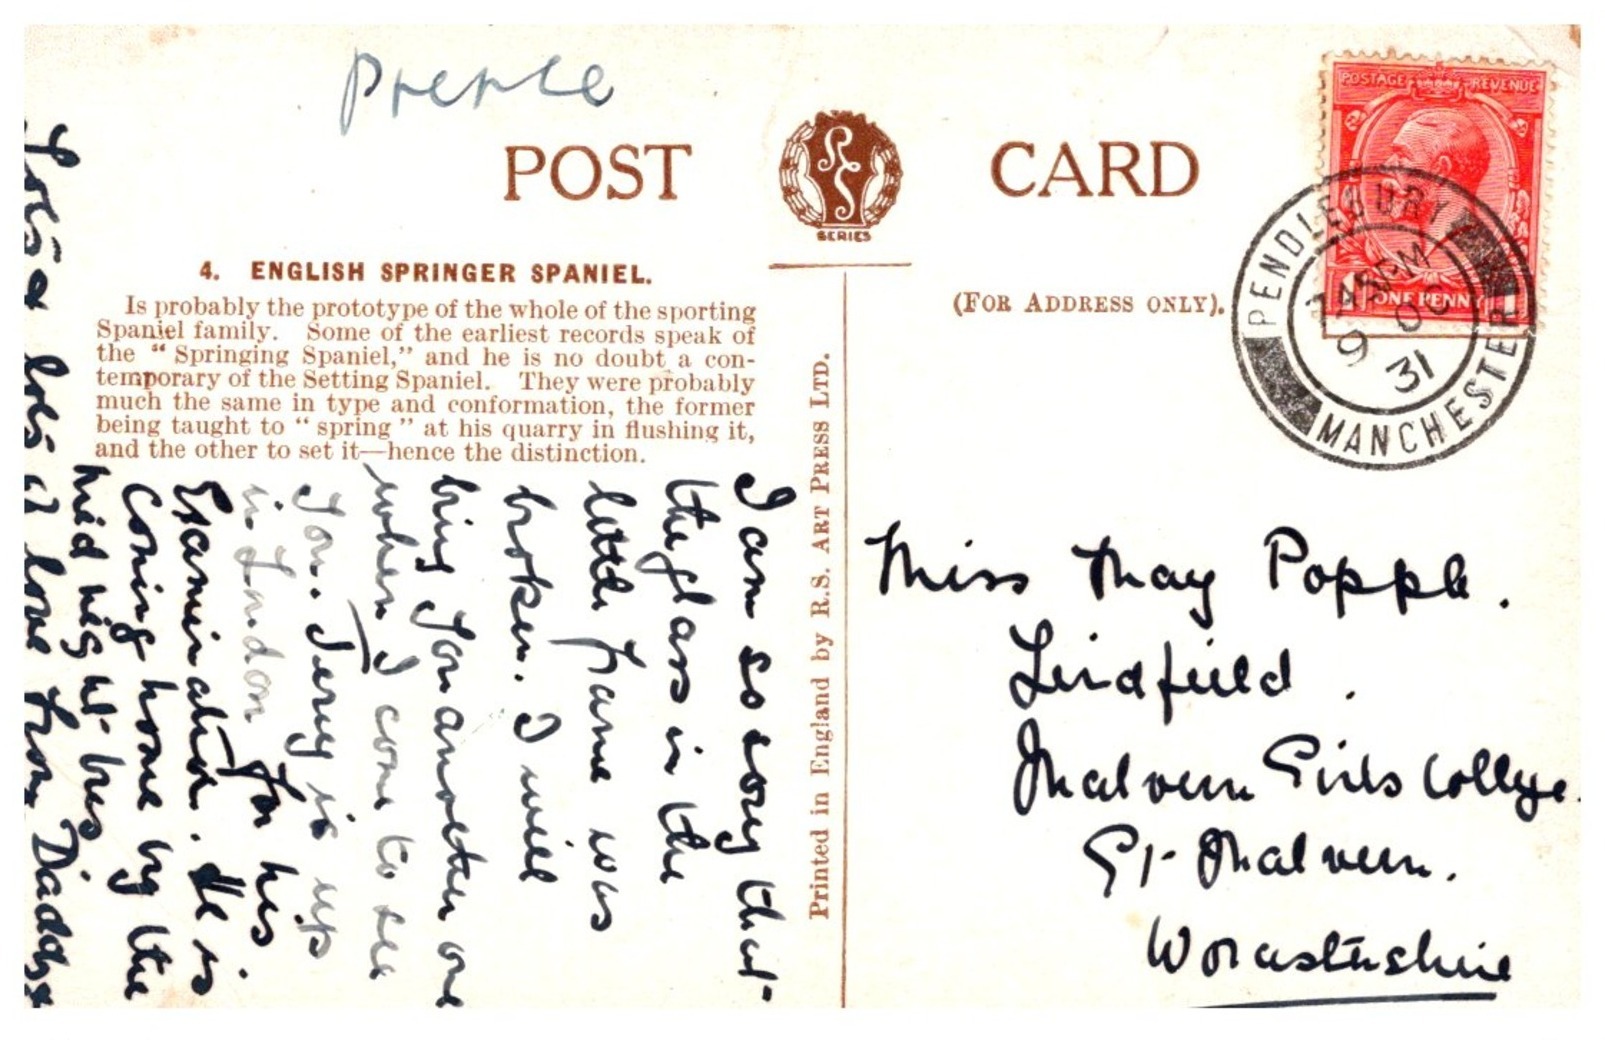 Prence
POST CARD
R S
SERIES
4. ENGLISH SPRINGER SPANIEL.
Is probably the prototype of the whole of the sporting
Spaniel family. Some of the earliest records speak of
the “ Springing Spaniel,” and he is no doubt a con-
temporary of the Setting Spaniel. They were probably
much the same in type and conformation, the former
being taught to “ spring ” at his quarry in flushing it,
and the other to set it—hence the distinction.
(FOR ADDRESS ONLY).
Printed in England by R.S. ART PRESS LTD.
POSTAGE REVENUE
ONE PENNY
PENDLEBURY
9 OC
31
MANCHESTER
I am so sorry that
the glass in the
little frame was
broken. I will
bring you another one
when I come to see
you. Jerry is up
in London for his
Examination. He is
coming home by the
mid night bus
Lots & lots of love from Daddy x
Miss May Popple.
Lindfield.
Malvern Girls College.
Gt Malvern.
Worcestershire